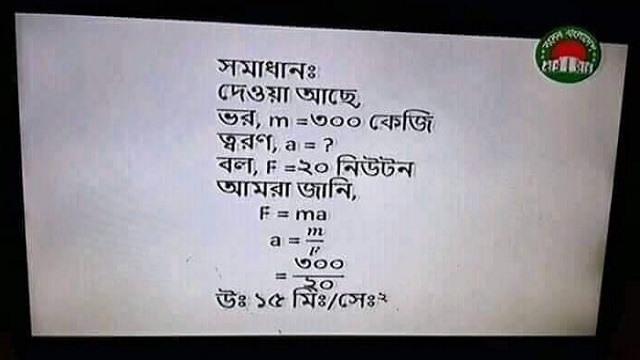 সমাধানঃ
দেওয়া আছে,
ভর, m =৩০০ কেজি
ত্বরণ, a = ?
বল, F =২০ নিউটন
আমরা জানি,
F = ma
a = m/F
= ৩০০/২০
উঃ ১৫ মিঃ/সেঃ²